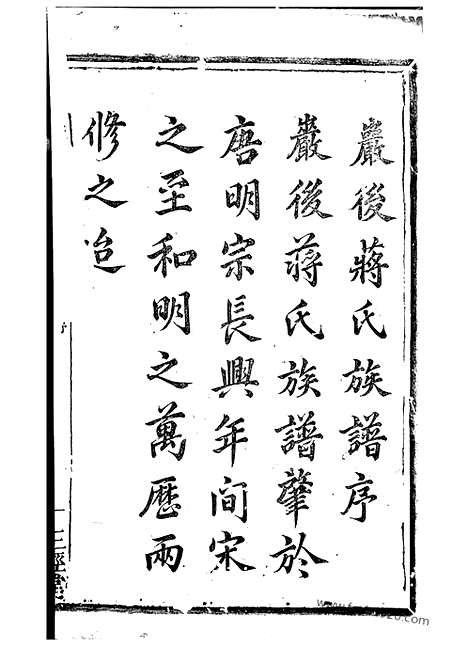 巖後蔣氏族譜序
巖後蔣氏族譜肇於
唐明宗長興年間宋
之至和明之萬厯兩
修之迨
序